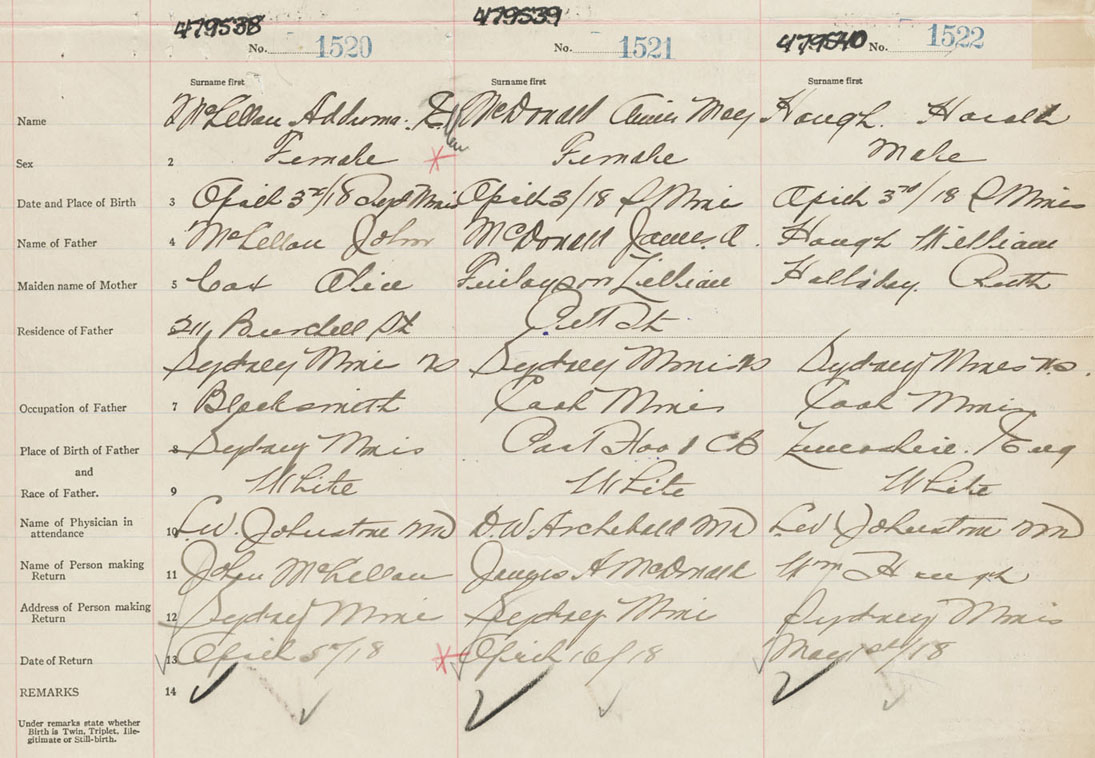 479538 479539 479540
No. 1520 No. 1521 No. 1522
Surname first Surname first Surname first
Name McLellan McDonald Annie May Hough. Harold
Sex 2 Female Female Male
Date and Place of Birth 3 April 3rd/18 Syd Mines April 3/18 S Mines April 3rd/18 S Mines
Name of Father 4 McLellan John McDonald James A. Hough William
Maiden name of Mother 5 Cox Alice Finlayson Lillian Halliday. Ruth
Residence of Father 211 Burchell St Pitt St
Sydney Mines NS Sydney Mines NS Sydney Mines N.S.
Occupation of Father 7 Blacksmith Coal Mines Coal Mines
Place of Birth of Father 8 Sydney Mines Port Hood CB Lancashire. Eng
and
Race of Father. 9 White White White
Name of Physician in attendance 10 L.W. Johnstone MD D.W. Archibald MD L.W Johnstone MD
Name of Person making Return 11 John McLellan James A McDonald Wm Hough
Address of Person making Return 12 Sydney Mines Sydney Mines Sydney Mines
Date of Return 13 April 5th/18 April 16/18 May 1st/18
REMARKS 14
Under remarks state whether
Birth is Twin, Triplet, Ille-
gitimate or Still-birth.